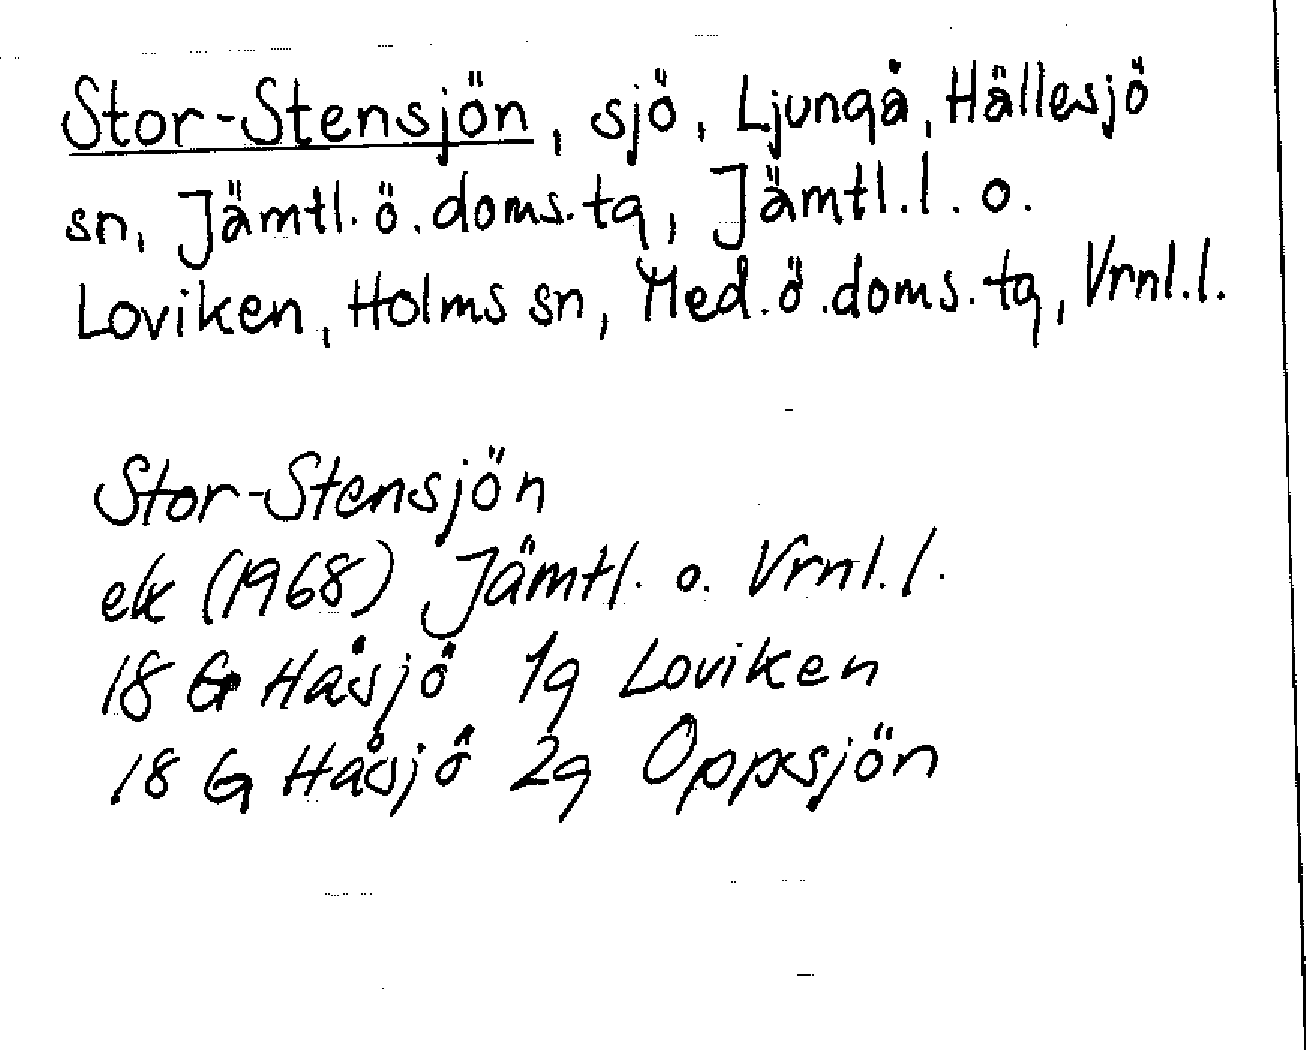 Stor-Stensjön, sjö, Ljungå, Hällesjö
sn, Jämtl.ö.doms.tg, Jämtl.l. o.
Loviken, Holms sn, Med.ö.doms.tg, Vrnl.l.
Stor-Stensjön
ek (1968) Jämtl. o. Vrnl.l.
18 G Håsjö 1g Loviken
18 G Håsjö 2g Oppsjön